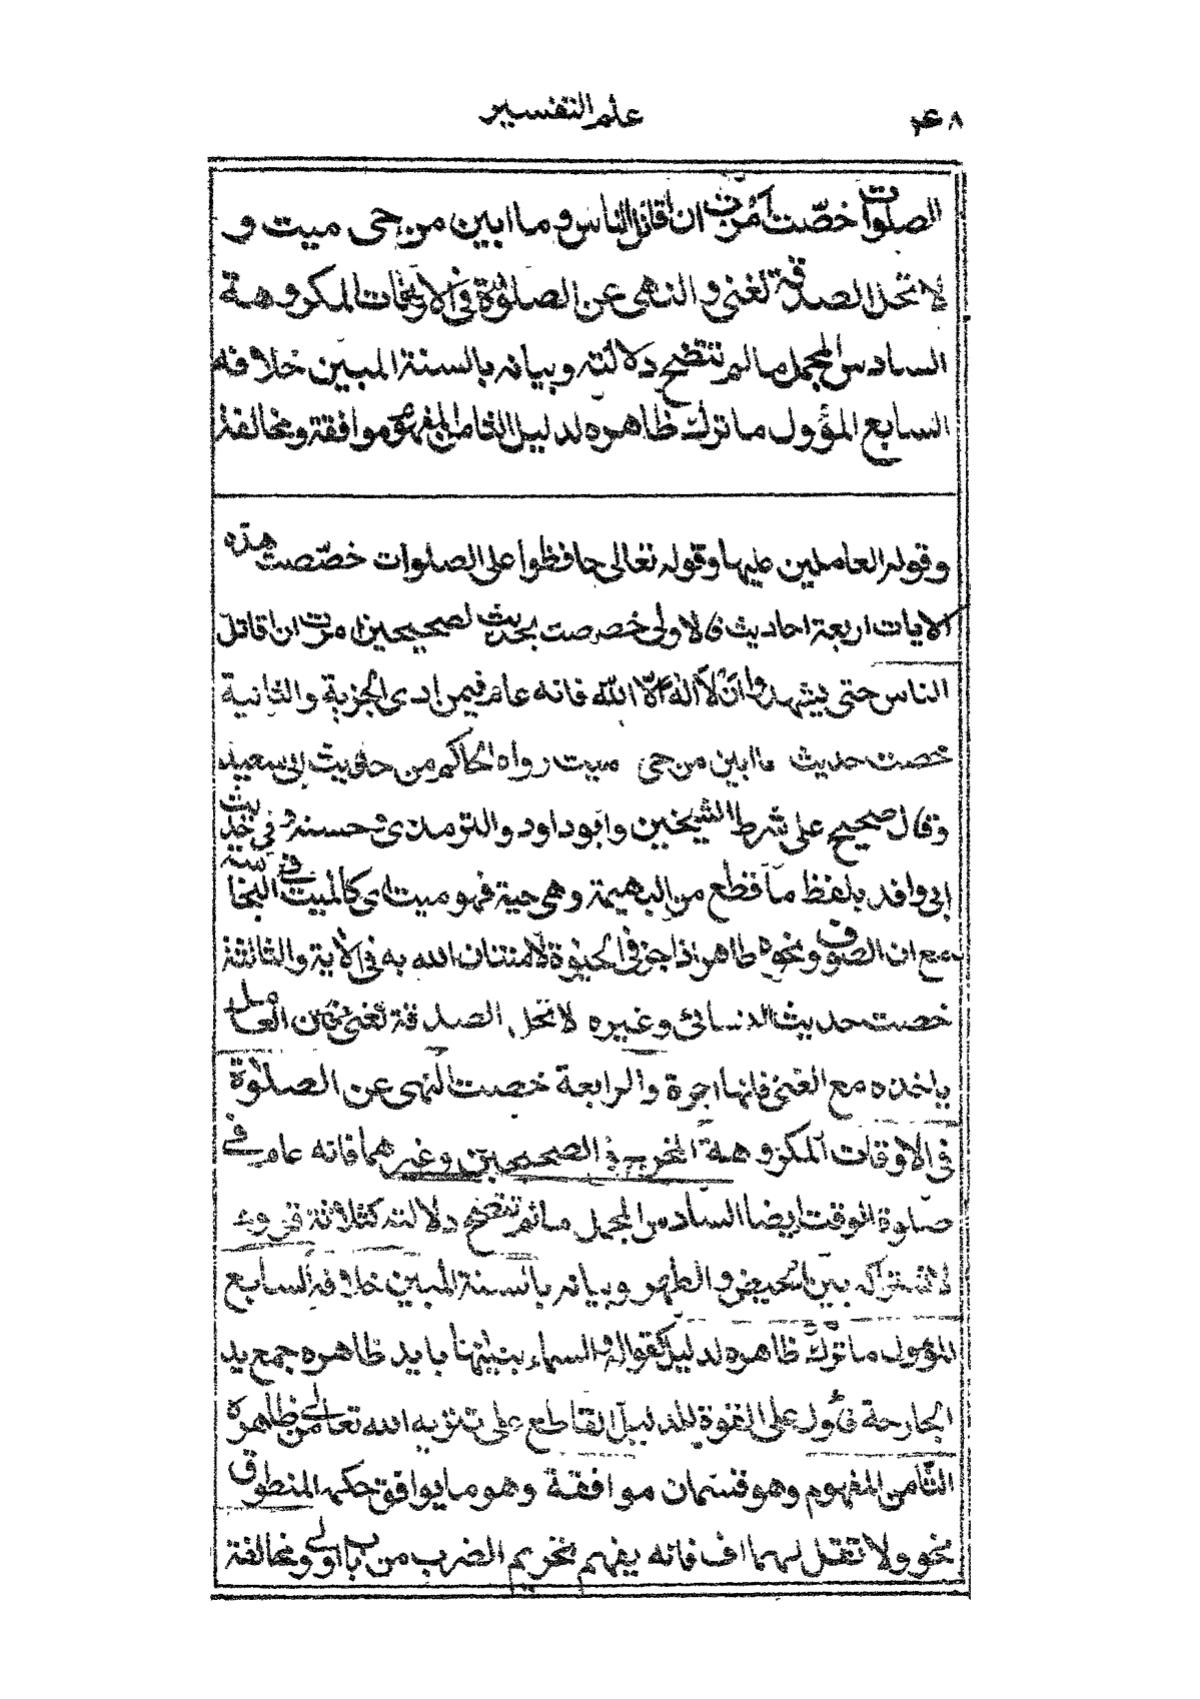 علم التفسير
الصلوات خصّت أمرت ان اقاتل الناس وما ابين من حي ميت و
لا تحل الصدقة لغنى والنهى عن الصلوٰة فى الاوقات المكروهة
السادس المجمل ما لم تتضح دلالته وبيانه بالسنة المبين خلافه
السابع المؤول ما ترك ظاهره لدليل الثامن المفهوم موافقة ومخالفة
وقوله العاملين عليها وقوله تعالى حافظوا على الصلوات خصّصت هذه
الايات اربعة احاديث فالاولى خصصت بحديث الصحيحين امرت ان اقاتل
الناس حتى يشهدوا ان لا اله الا الله فانه عام فيمن ادى الجزية والثانية
خصت حديث ما ابين من حى ميت رواه الحاكم من حديث ابى سعيد
وقال صحيح على شرط الشيخين وابو داود والترمذى وحسنه فى حديث
ابى واقد بلفظ ما قطع من البهيمة وهى حية فهو ميت اى كالميت فى النجاسة
مع ان الصوف ونحوه طاهر اذا جز فى الحيوة لامتنان الله به فى الاية والثالثة
خصت حديث النسائى وغيره لا تحل الصدقة لغنى فان العامل
ياخذه مع الغنى فانها اجرة والرابعة خصت النهى عن الصلوٰة
فى الاوقات المكروهة المخرج فى الصحيحين وغيرهما فانه عام فى
صلوة الوقت ايضا السادس المجمل ما لم تتضح دلالته كثلاثة قروء
لاشتراكه بين الحيض والطهر وبيانه بالسنة المبين خلافه السابع
المؤول ما ترك ظاهره لدليل كقوله والسماء بنيناها بايد ظاهره جمع يد
الجارحة فاول على القوة للدليل القاطع على تنزيه الله تعالى من ظاهره
الثامن المفهوم وهو قسمان موافقة وهو ما يوافق حكمه المنطوق
نحو ولا تقل لهما اف فانه يفهم تحريم الضرب من باب اولى ومخالفة